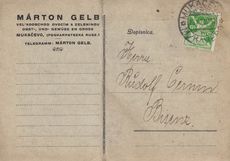 MÁRTON GELB
VEL'KOOBCHOD OVOCÍM A ZELENINOU
OBST-, UND- GEMÜSE EN GROSS
MUKAČEVO, (PODKARPATSKA RUS.)
TELEGRAMM: MÁRTON GELB.
Dopisnice.
MUKAČEVO
Herrn
Rudolf Cernin
Brienz.